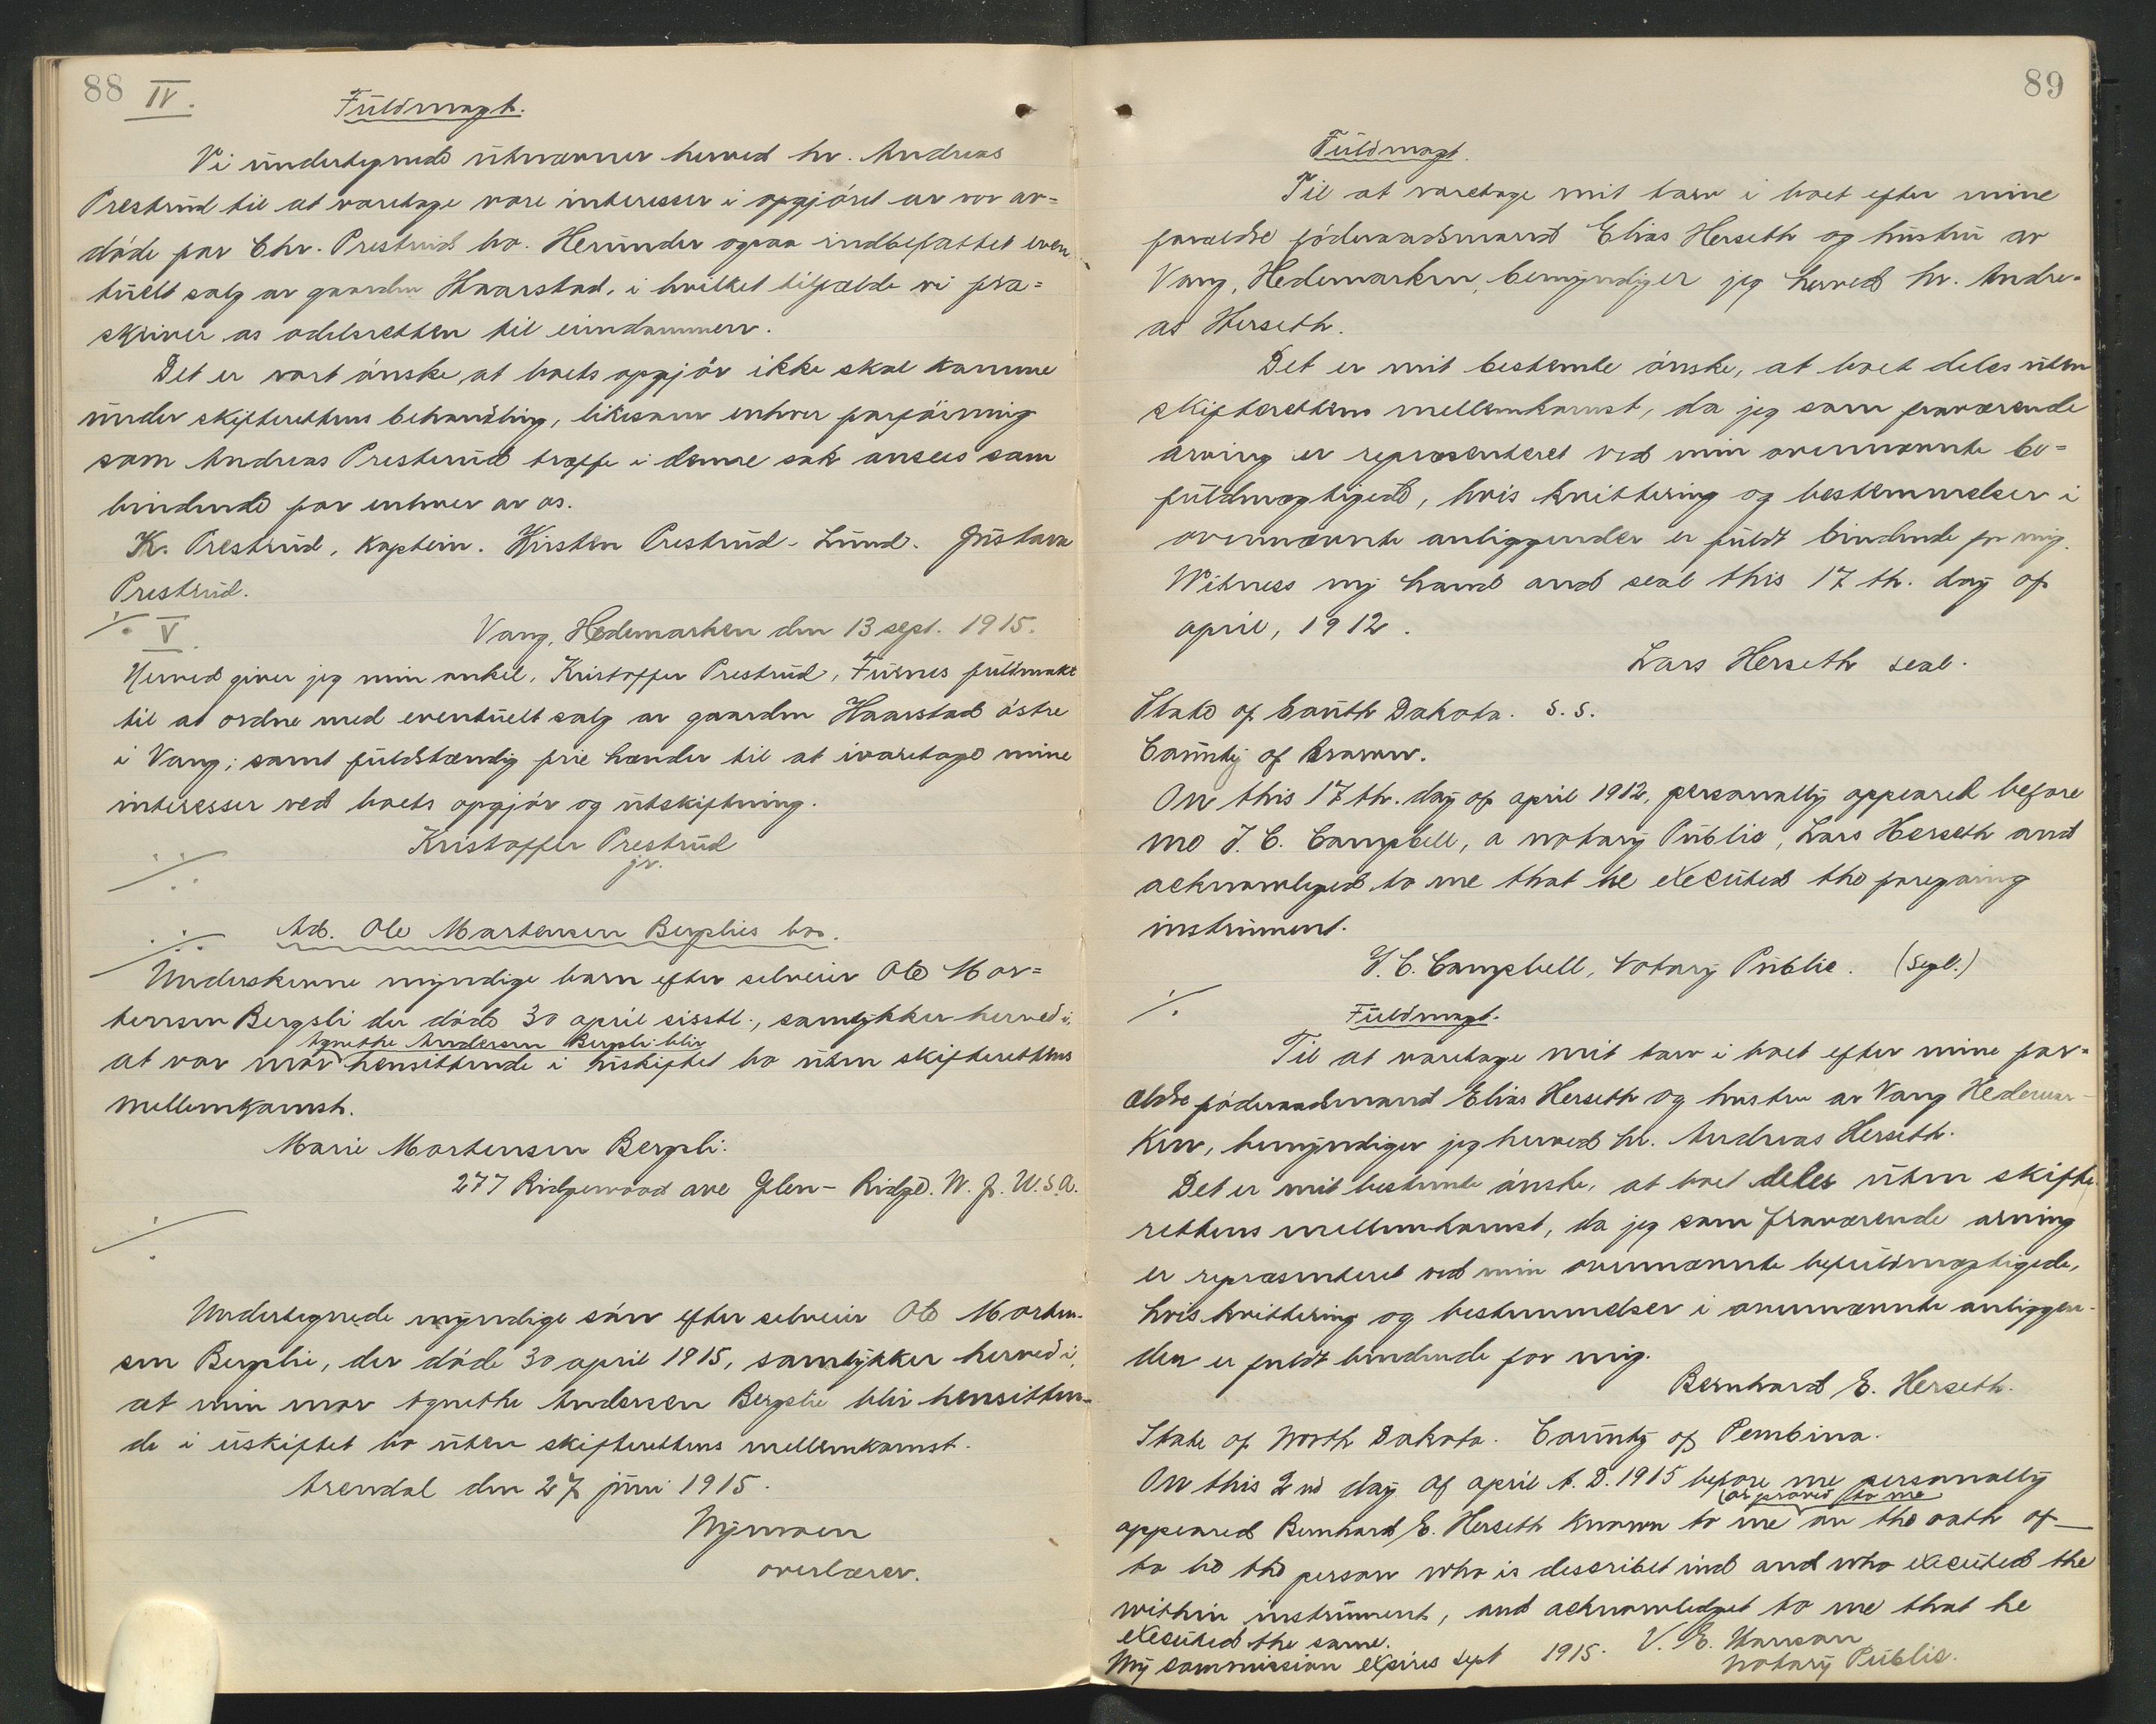 88 IV.
Fuldmagt.
Vi undertegnede utnævner herved hr. Andreas
Prestrud til at varetage vore interesser i opgjöret av vor av=
döde far Chr. Prestruds bo. Herunder ogsaa indbefattet even
tuelt salg av gaarden Haarstad, i hvilket tilfælde vi fra=
skriver os odelsretten til eiendommen.
Det er vort önske, at boets opgjör ikke skal komme
under skifterettens behandling, likesom enhver forföining
som Andreas Prestrud træffe i denne sak ansees som
bindende for enhver av os.
K. Prestrud, kaptein. Kirsten Prestrud-Lund. Gustava
Prestrud.
V
Vang, Hedemarken den 13 sept. 1915.
Herved giver jeg min onkel, Kristoffer Prestrud, Furnes fuldmakt
til at ordne med eventuelt salg av gaarden Haarstad östre
i Vang; samt fuldstændig frie hænder til at ivaretage mine
interesser ved boets opgjör og utskiftning.
Kristoffer Prestrud
jr.
Ad. Ole Martensen Bergslies bo.
Underskrevne myndige barn efter selveier Ole Mor=
tensen Bergsli der döde 30 april sisstl., samtykker herved i,
Agnethe Andersen Bergsli blir
at vor mor hensittende i uskiftet bo uten skifterettens
mellemkomst.
Marie Mortensen Bergsli.
277 Ridgewood ave Glen-Ridge. N. J. U.S.A.
Undertegnede myndige sön efter selveier Ole Morten-
sen Bergslie, der döde 30 april 1915, samtykker herved i,
at min mor Agnethe Andersen Bergslie blir hensitten-
de i uskiftet bo uten skifterettens mellemkomst.
Arendal den 27 juni 1915.
Nymoen
overlærer.
89
Fuldmagt.
Til at varetage mit tarv i boet efter mine
forældre föderaadsmand Elias Herseth og hustru av
Vang, Hedemarken, bemyndiger jeg herved hr. Andre-
as Herseth.
Det er mit bestemte önske, at boet deles uten
skifterettens mellemkomst, da jeg som fraværende
arving er repræsenteret ved min ovennævnte be=
fuldmægtigede, hvis kvittering og bestemmelser i
ovennævnte anliggender er fuldt bindende for mig.
Witness my hand and seal this 17 th. day of
april, 1912.
Lars Herseth seal.
State of South Dakota. S.S.
County of Brown.
On this 17 th. day of april 1912, personally appeared before
me J. C. Campbell, a notary Public, Lars Herseth and
acknowleged to me that he executed the foregoing
instrument.
J. C. Campbell, Notary Public. (Segl.)
Fuldmagt.
Til at varetage mit tarv i boet efter mine for-
ældre föderaadsmand Elias Herseth og hustru av Vang Hedemar-
ken, bemyndiger jeg herved hr. Andreas Herseth.
Det er mit bestemte önske, at boet deles uten skifte-
rettens mellemkomst, da jeg som fraværende arving
er repræsenteret ved min ovennævnte befuldmægtigede,
hvis kvittering og bestemmelser i ovennævnte anliggen-
der er fuldt bindende for mig.
Bernhard E. Herseth.
State of North Dakota. County of Pembina.
On this 2 nd day of april A.D. 1915 before me personally
(or proved to me
appeared Bernhard E. Herseth known to me on the oath of —
to be the person who is describet ind and who executed the
within instrument, and acknowledget to me that he
executed the same.
V. E. Hanson
My commission expires Sept 1915.
Notary Public.